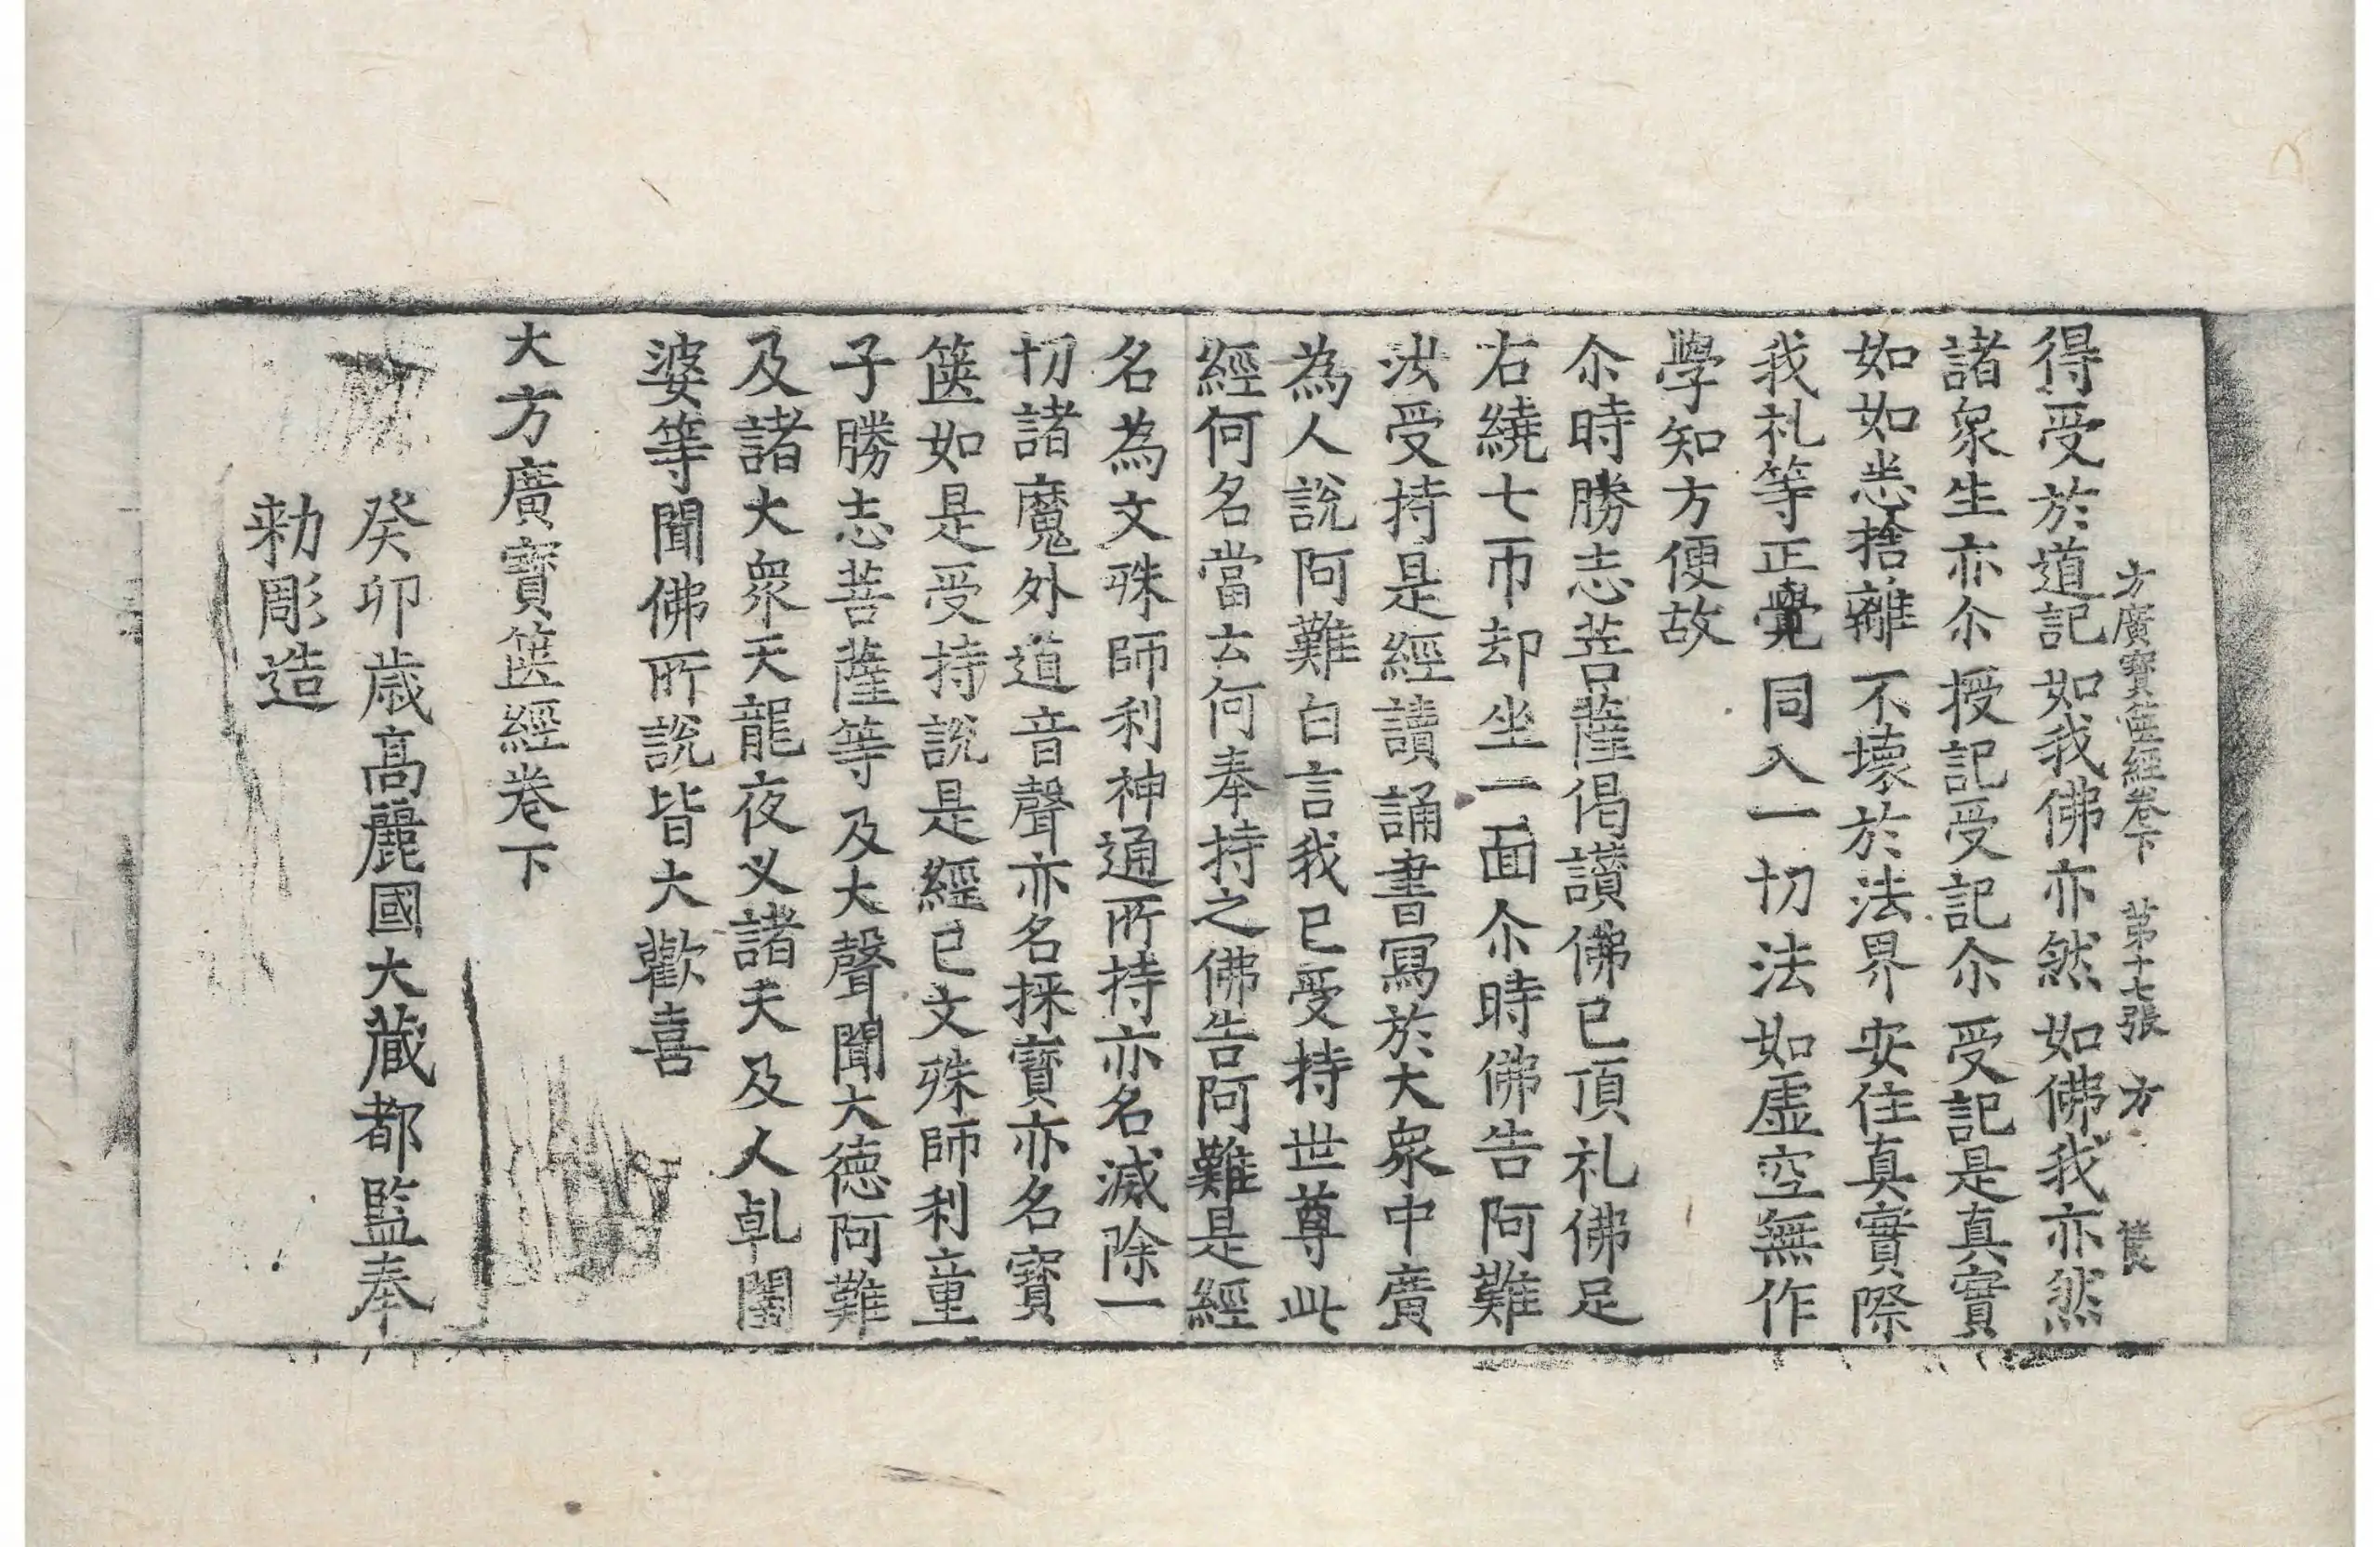 方廣寶篋經卷下 第十七張 方
得受於道記 如我佛亦然 如佛我亦然
諸衆生亦尒 授記受記尒 受記是真實
如如悉捨離 不壞於法界 安住真實際
我礼等正覺 同入一切法 如虛空無作
學知方便故
尒時勝志菩薩偈讃佛已頂礼佛足
右繞七帀却坐一面尒時佛告阿難
汝受持是經讀誦書寫於大衆中廣
為人說阿難白言我已受持世尊此
經何名當云何奉持之佛告阿難是經
名為文殊師利神通所持亦名滅除一
切諸魔外道音聲亦名採寶亦名寶
篋如是受持說是經已文殊師利童
子勝志菩薩等及大聲聞大德阿難
及諸大衆天龍夜叉諸天及人乹闥
婆等聞佛所說皆大歡喜
大方廣寶篋經卷下
癸卯歳高麗國大藏都監奉
勑彫造